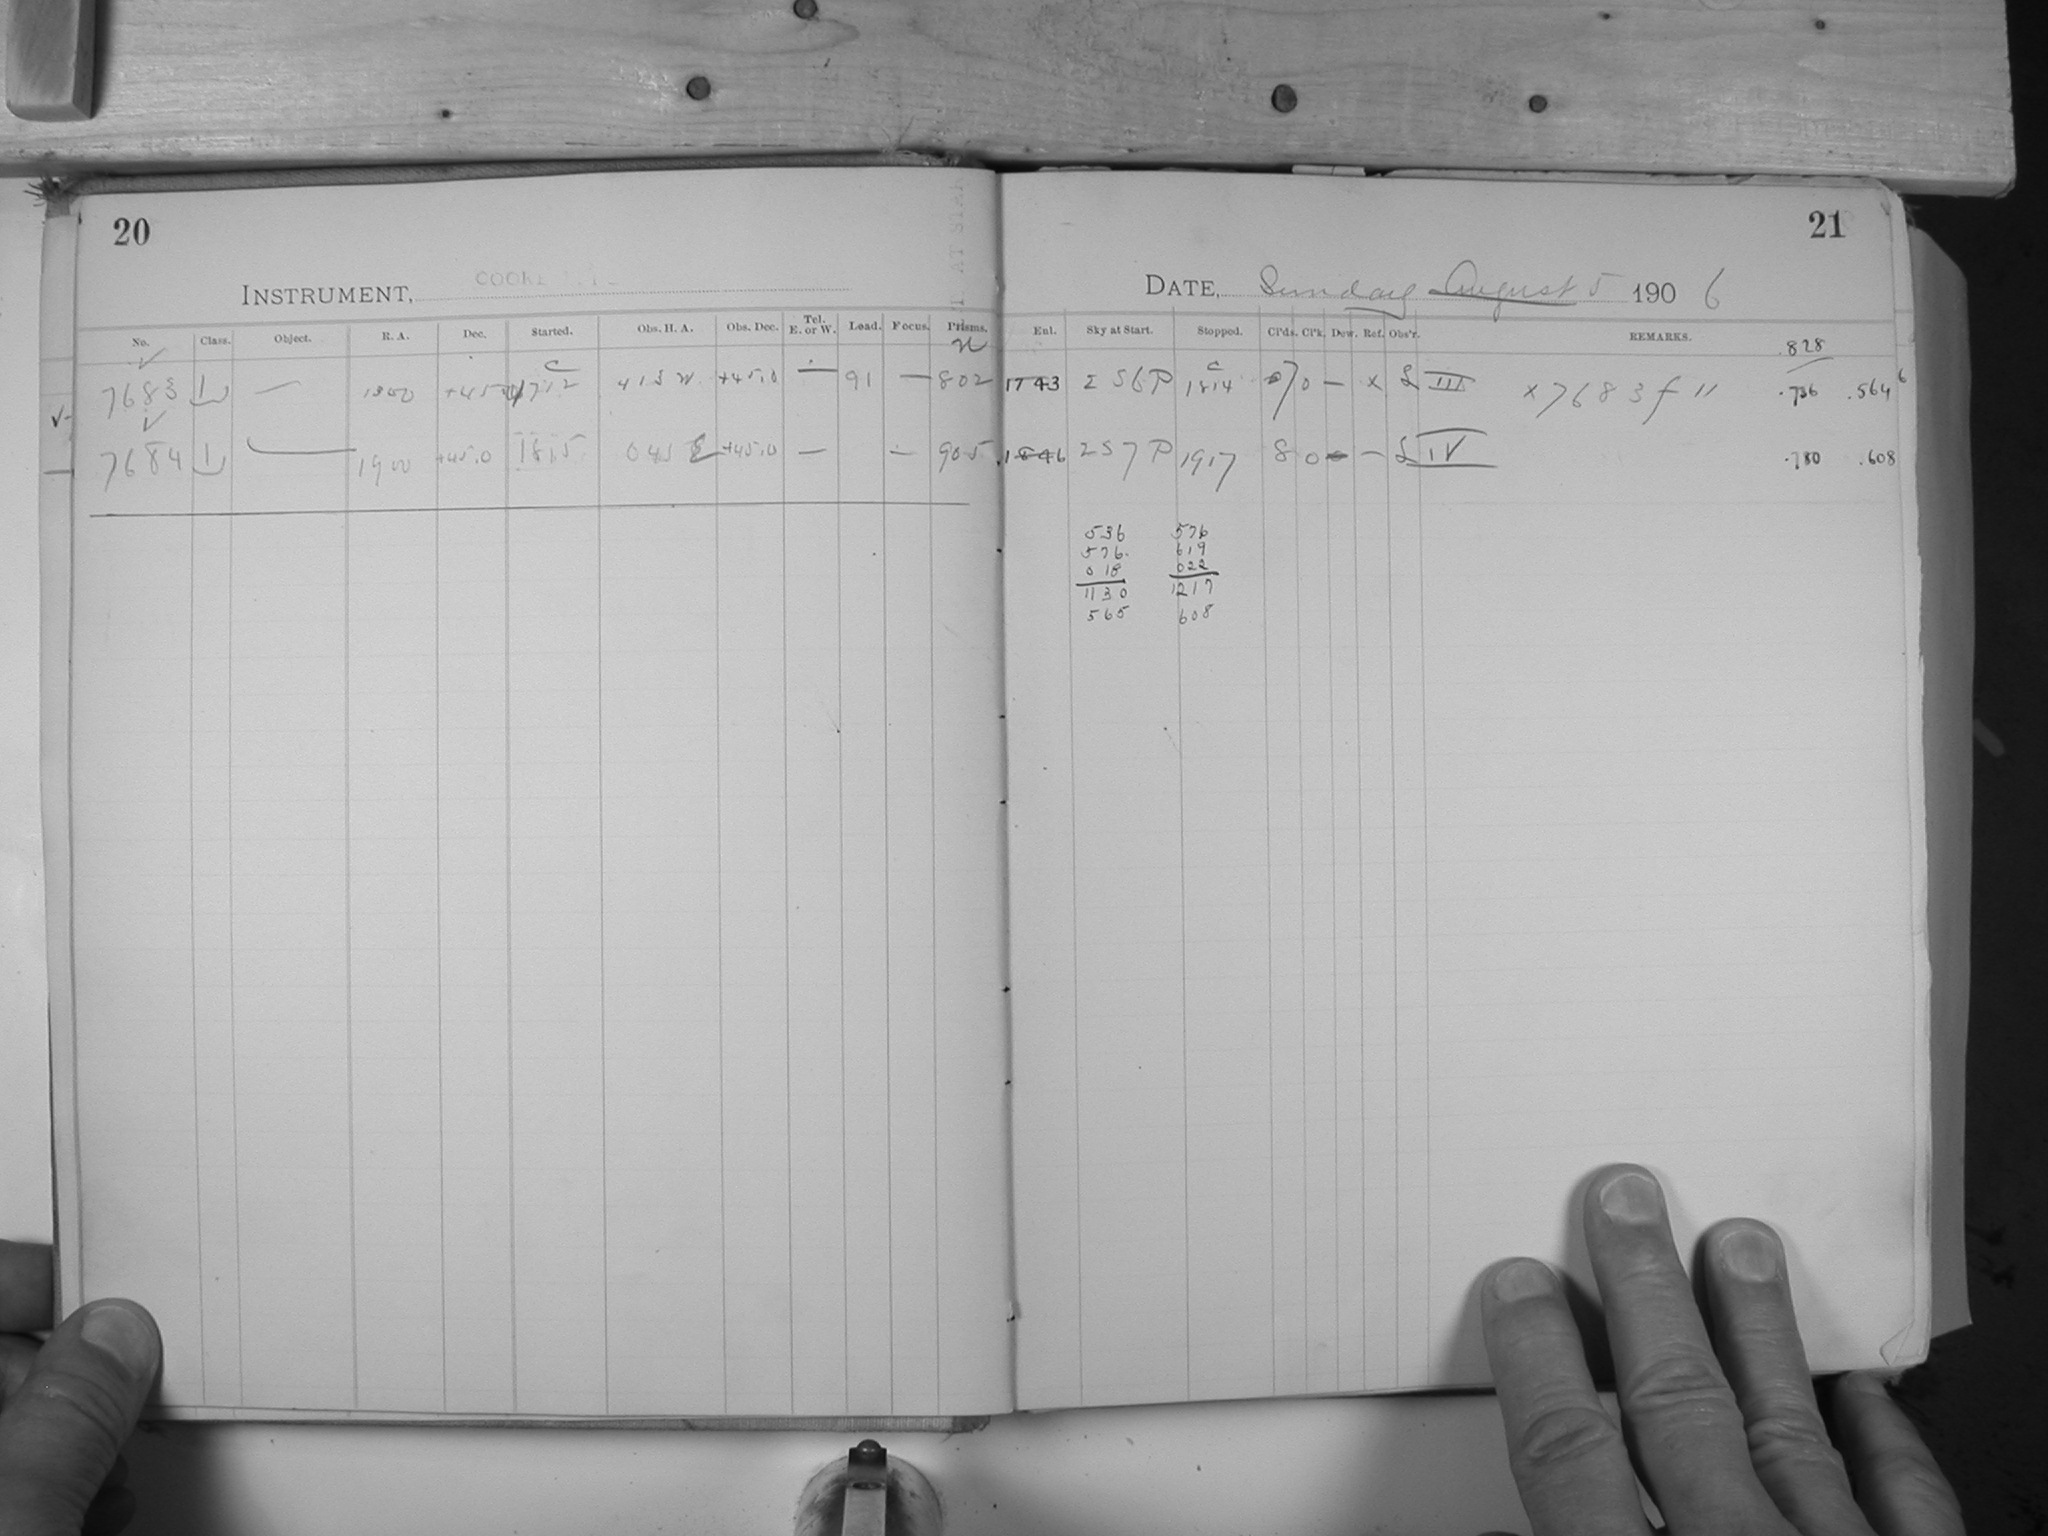 20
INSTRUMENT, COOKE
No. Class. Object. R. A. Dec. Started. Obs. H. A. Obs. Dec. Tel. E. or W. Load. Focus. Prisms.
7683 — +45.0 +45.0 — 91 — 802
7684 1900 +45.0 1815 045 E +45.0 — — 905
21
DATE, Sunday August 5 1906
Enl. Sky at Start. Stopped. Cl'ds. Cl'k. Dew. Ref. Obs'r. REMARKS.
.828
1743 2 56 P 1814 0 — x £ III x 7683 f " .736 .564
1846 2 57 P 1917 8 0 — £ IV .780 .608
536 576
576. 619
018 022
1130 1217
565 608